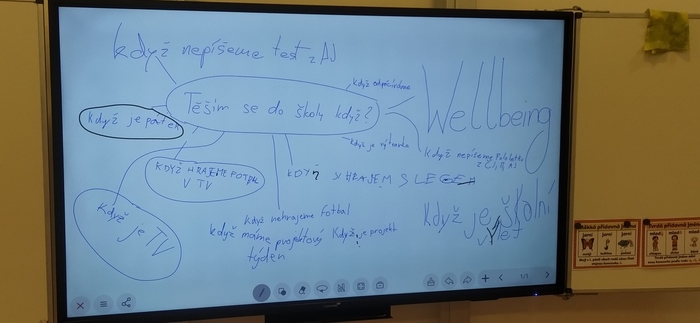 když nepíšeme test z AJ
když odpočíváme
Těším se do školy když?
Wellbeing
Když je pátek
když je výtvarka
Když nepíšeme
KDYŽ HRAJEME FOTBAL
V TV
KDYŽ SI HRAJEM S LEGEM
Když je TV
Když nehrajeme fotbal
když máme projektový
týden
Když je projekt
Když je školní
výlet
1/1